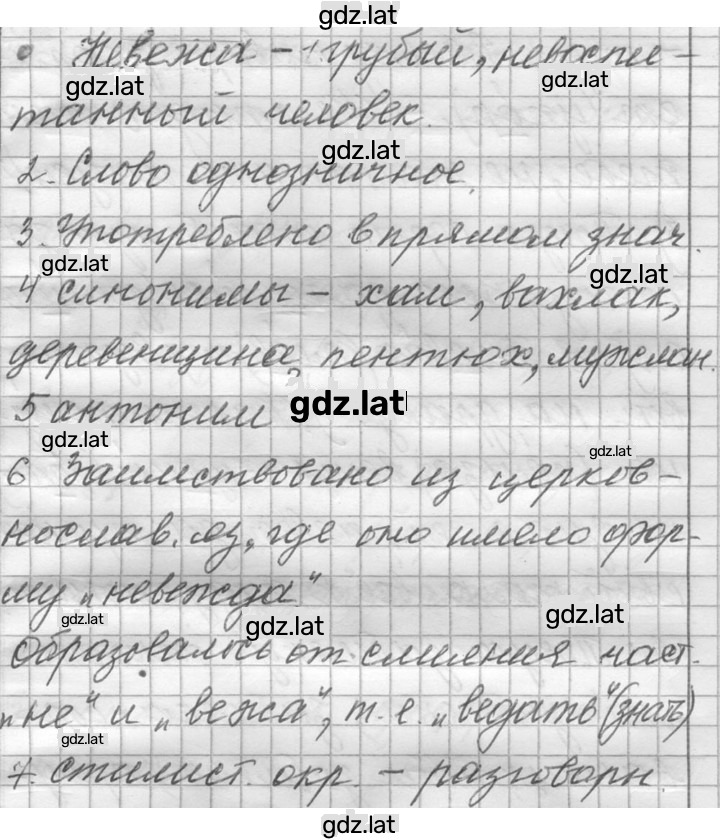 gdz.lat
Невежа - грубый, невоспи-
gdz.lat gdz.lat
танный человек.
gdz.lat
2. Слово однозначное.
3. Употреблено в прямом знач.
gdz.lat gdz.lat
4 синонимы - хам, вахлак,
деревенщина, пентюх, мужлан.
5 антоним gdz.lat
gdz.lat gdz.lat
6 Заимствовано из церков-
нослав. яз, где оно имело фор-
му „невежда"
gdz.lat gdz.lat gdz.lat
образовалось от слияния част.
„не" и „вежа", т.е. „ведать" (знать)
gdz.lat
7. стилист. окр. - разговорн.
gdz.lat